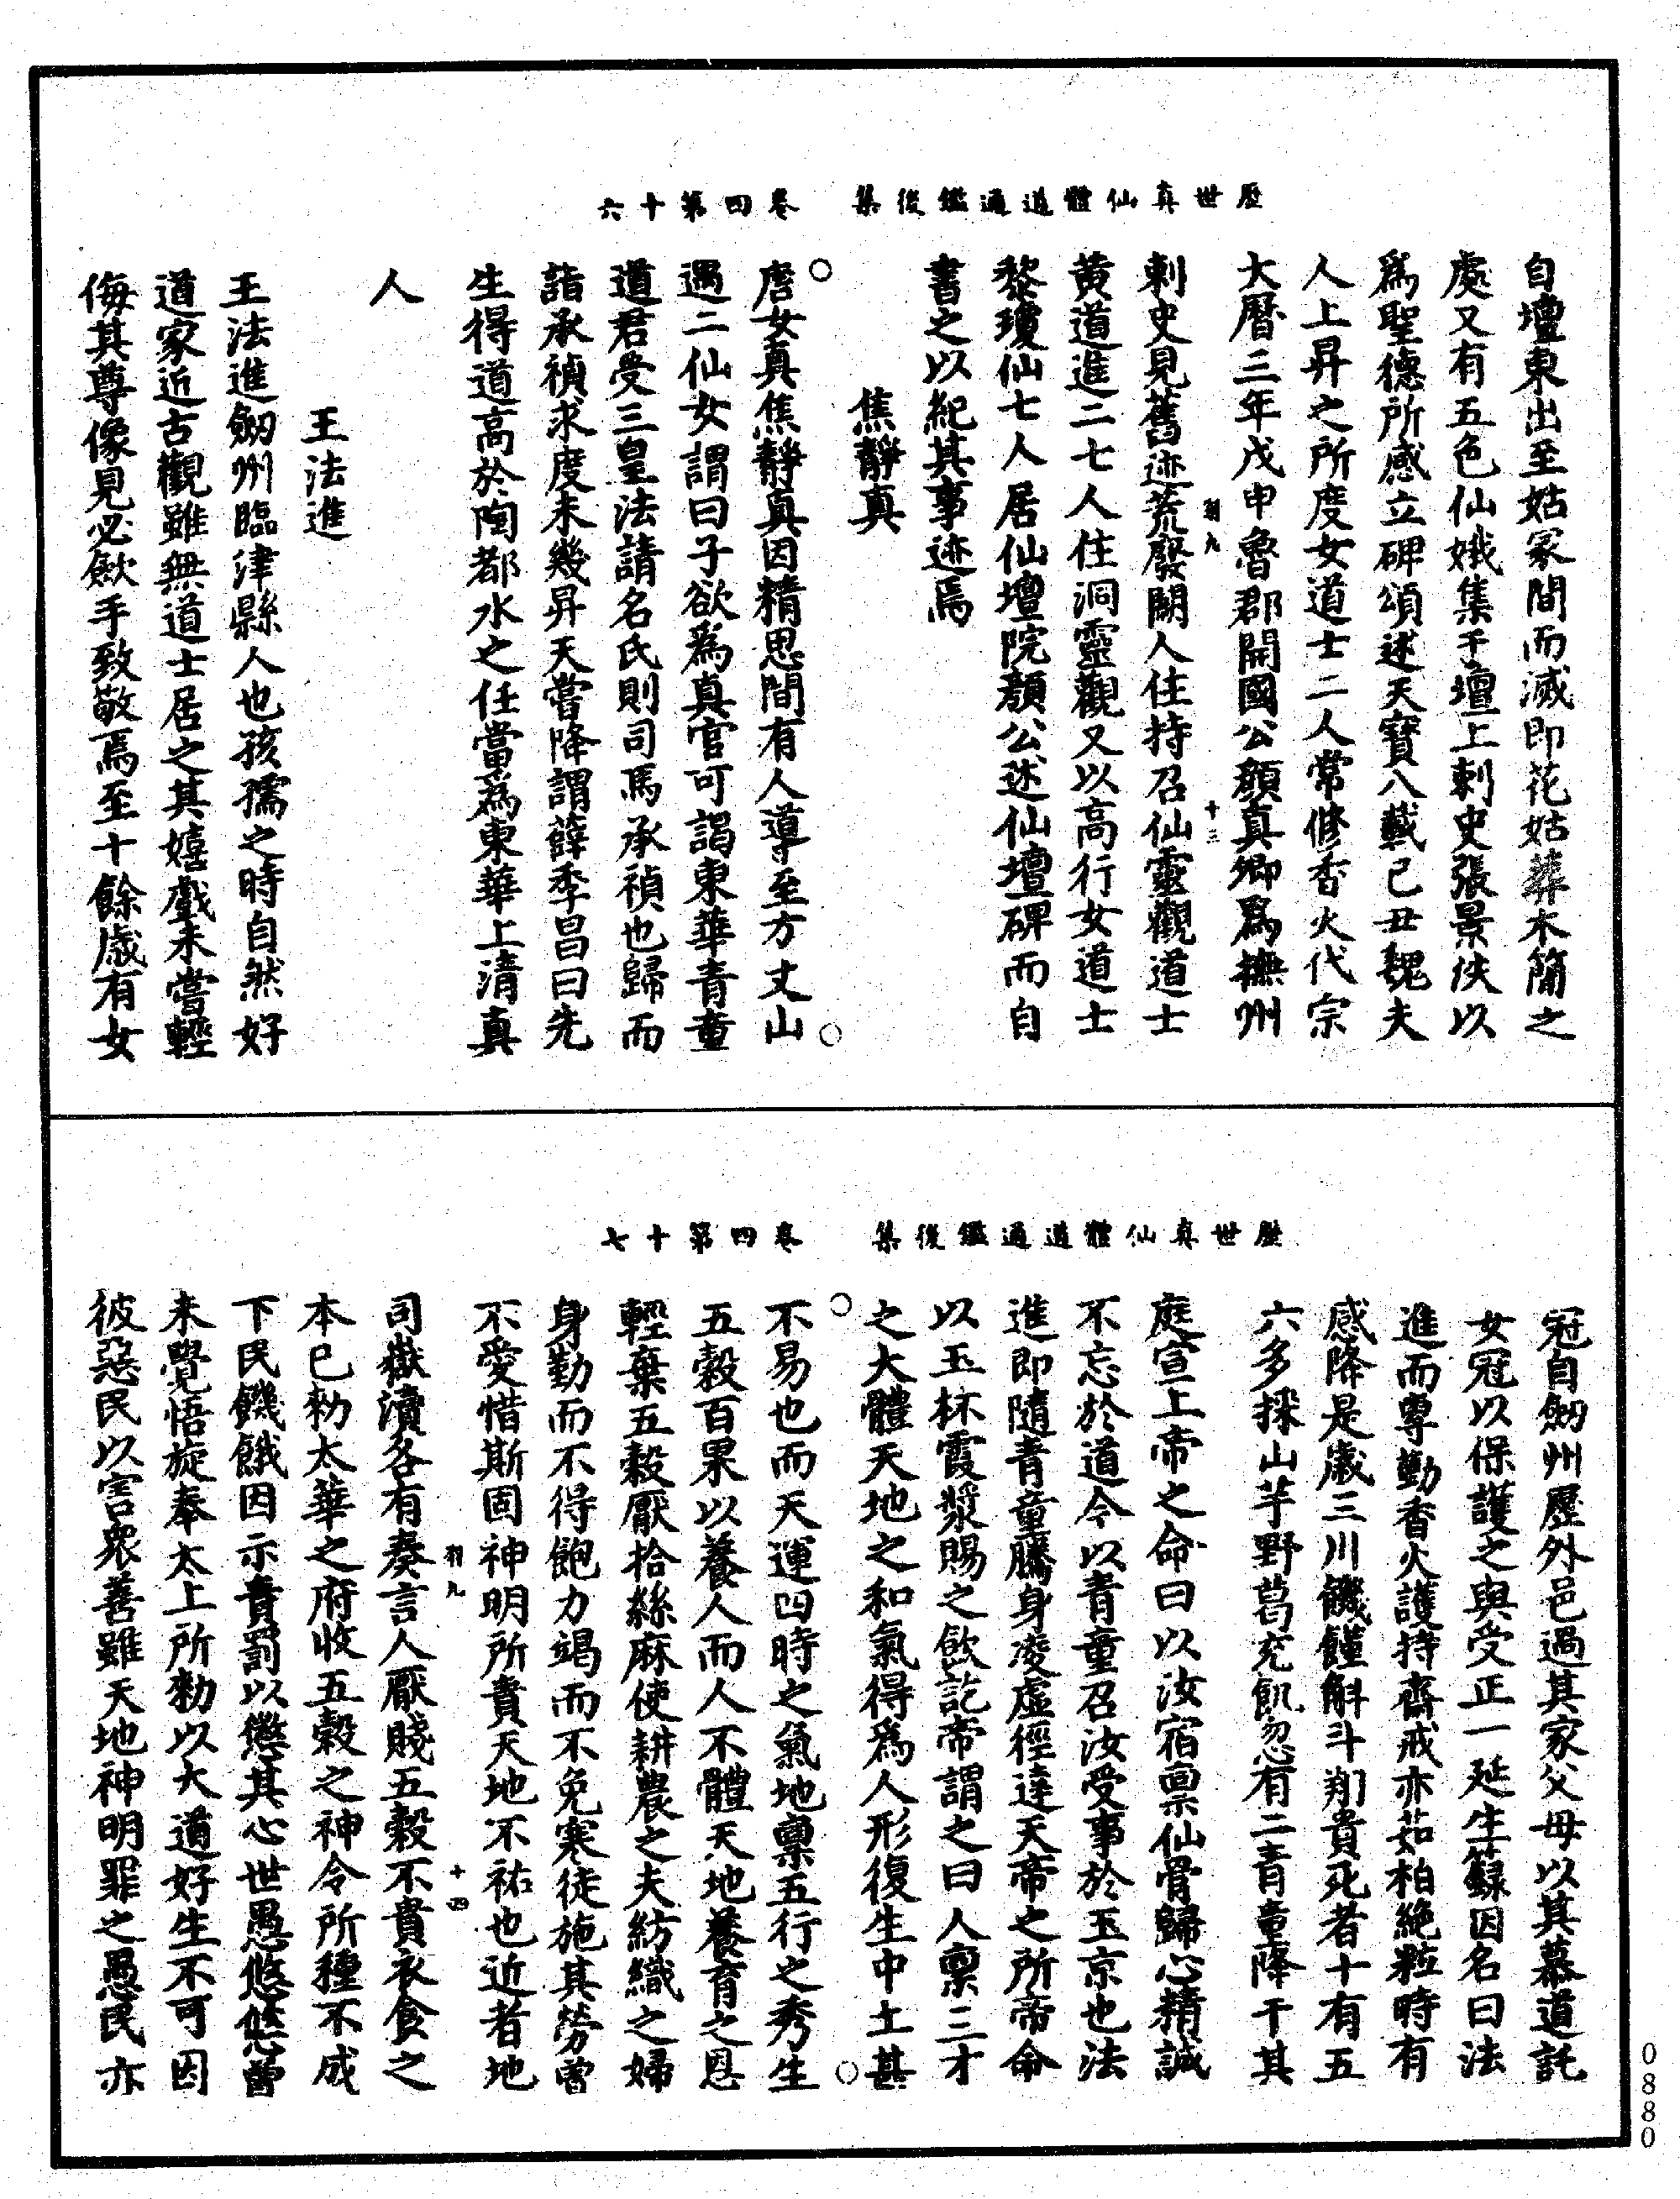 歷世真仙體道通鑑後集　卷四第十六
自壇東出至姑冢間而滅即花姑葬木簡之
處又有五色仙娥集于壇上刺史張景佚以
爲聖德所感立碑頌述天寶八載己丑魏夫
人上昇之所度女道士二人常修香火代宗
大曆三年戊申魯郡開國公顔真卿爲撫州
羽九　十三
刺史見舊迹荒廢闕人住持召仙靈觀道士
黄道進二七人住洞靈觀又以高行女道士
黎瓊仙七人居仙壇院顔公述仙壇碑而自
書之以紀其事迹焉
焦靜真
唐女真焦靜真因精思間有人導至方丈山
遇二仙女謂曰子欲爲真官可謁東華青童
道君受三皇法請名氏則司馬承禎也歸而
詣承禎求度未幾昇天嘗降謂薛季昌曰先
生得道高於陶都水之任當爲東華上清真
人
王法進
王法進劒州臨津縣人也孩孺之時自然好
道家近古觀雖無道士居之其嬉戲未嘗輕
侮其尊像見必歛手致敬焉至十餘歲有女
歷世真仙體道通鑑後集　卷四第十七
冠自劒州歷外邑過其家父母以其慕道託
女冠以保護之與受正一延生籙因名曰法
進而專勤香火護持齋戒亦茹柏絶粒時有
感降是歲三川饑饉斛斗翔貴死者十有五
六多採山芋野葛充飢忽有二青童降于其
庭宣上帝之命曰以汝宿稟仙骨歸心精誠
不忘於道今以青童召汝受事於玉京也法
進即隨青童騰身凌虚徑達天帝之所帝命
以玉杯霞漿賜之飲訖帝謂之曰人稟三才
之大體天地之和氣得爲人形復生中土甚
不易也而天運四時之氣地稟五行之秀生
五穀百果以養人而人不體天地養育之恩
輕棄五穀厭拾絲麻使耕農之夫紡織之婦
身勤而不得飽力竭而不免寒徒施其勞曽
不愛惜斯固神明所責天地不祐也近者地
羽九　十四
司嶽瀆各有奏言人厭賤五穀不貴衣食之
本已勑太華之府收五穀之神令所種不成
下民饑餓因示責罰以懲其心世愚悠悠曽
未覺悟旋奉太上所勑以大道好生不可因
彼惡民以害衆善雖天地神明罪之愚民亦
0880